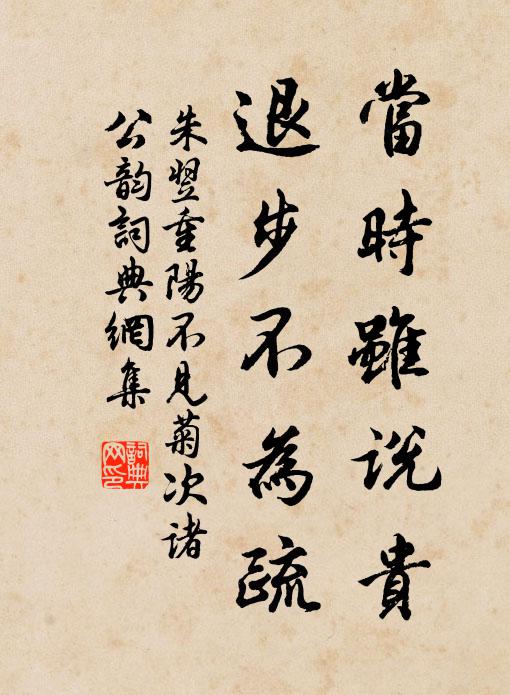 當時雖說貴
退步不為疏
朱翌重陽不見菊次諸
公韵詞典網集
詞典
网印